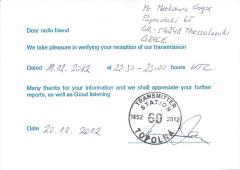 Mr. Merkouris Gogos
Papadaki 45
GR-54248 Thessaloniki
GREECE
Dear radio friend
We take pleasure in verifying your reception of our transmission
Dated 11.12.2012 at 22:30-23:00 hours UTC
Many thanks for your information and we shall appreciate your further
reports, as well as Good listening
Date 20.12.2012
TRANSMITTER
STATION
1952 60 2012
TOPOLNA